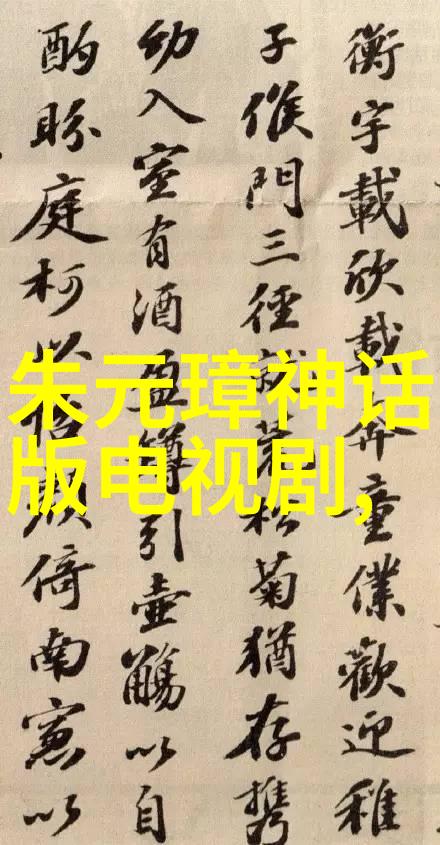 朱元璋神话
版电视剧,
衡宇載欣載奔童僕歡迎稚
子候門三徑就荒松菊猶存携
幼入室有酒盈罇引壺觴以自
酌眄庭柯以怡顏倚南窻以